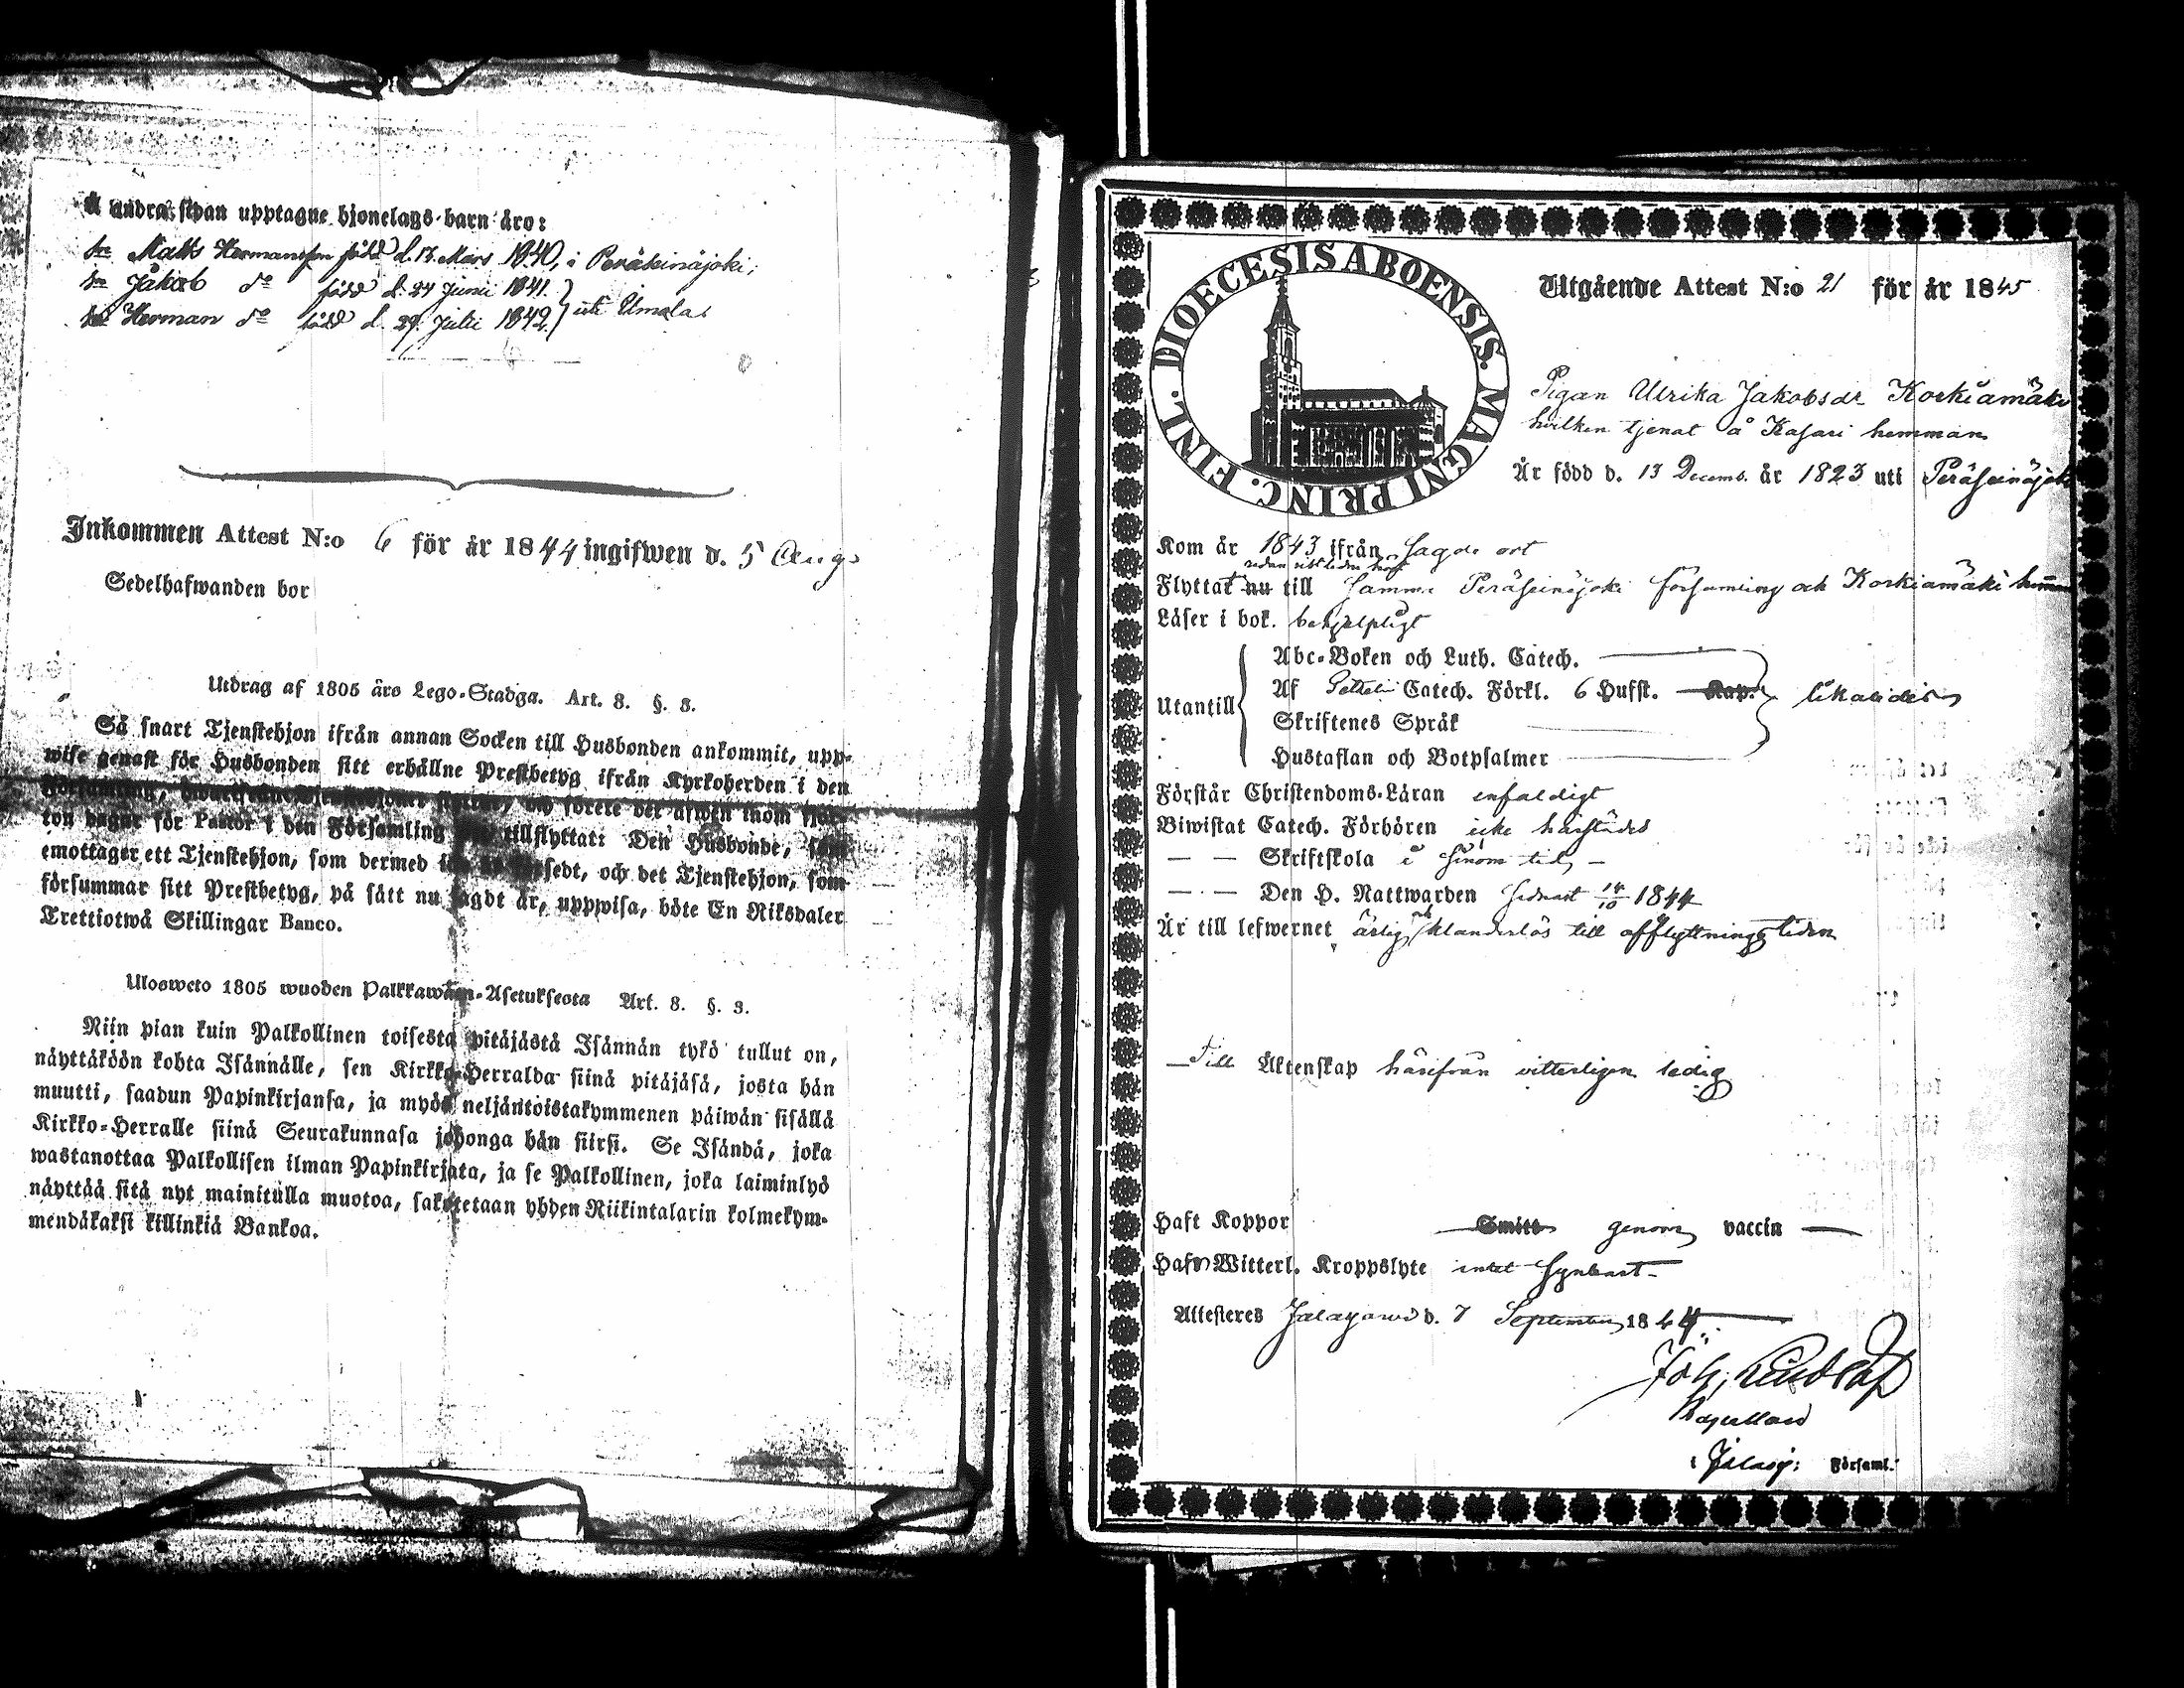 Å andra sidan upptagne hjonelags-barn äro:
Sn Matts Hermansson född d. 13 Mars 1840, i Peräseinäjoki;
Sn Jakob do född d. 24 Junii 1841.
Sn Herman do född d. 29 Julii 1842. uti Umola
Inkommen Attest N:o 6 för år 1844 ingifwen d. 5 Aug
Sedelhafwanden bor
Utdrag af 1805 års Lego-Stadga. Art. 8. §. 8.
Så snart Tjenstehjon ifrån annan Socken till Husbonden ankommit, upp-
wise genast för Husbonden sitt erhållne Prestbetyg ifrån Kyrkoherden i den
Församling,
ton dagar för Pastor i den Församling tillflyttat: Den Husbonde, som
emottager ett Tjenstehjon, som dermed och det Tjenstehjon, som
försummar sitt Prestbetyg, på sätt nu sagdt är, uppwisa, böte En Riksdaler
Trettiotwå Skillingar Banco.
Ulosweto 1805 wuoden Palkkawäen-Asetuksesta Art. 8. §. 3.
Niin pian kuin Palkollinen toisesta pitäjästä Isännän tykö tullut on,
näyttäköön kohta Isännälle, sen Kirkko-Herralda siinä pitäjäsä, josta hän
muutti, saadun Papinkirjansa, ja myös neljäntoistakymmenen päiwän sisällä
Kirkko-Herralle siinä Seurakunnasa johonga hän siirsi. Se Isändä, joka
wastanottaa Palkollisen ilman Papinkirjata, ja se Palkollinen, joka laiminlyö
näyttää sitä nyt mainitulla muotoa, sakotetaan yhden Riikintalarin kolmekym-
mendäkaksi killinkiä Bankoa.
DIOECESIS ABOENSIS. MAGNI PRINC. FINL.
Utgående Attest N:o 21 för år 1845
Pigan Ulrika Jakobsdr Korkiamäki
hvilken tjenat å Kasari hemman
Är född d. 13 Decemb. år 1823 uti Peräseinäjoki
Kom år 1843 ifrån sagde ort
redan sistleden höst
Flyttat nu till samma Peräseinäjoki församling och Korkiamäki hemman
Läser i bok. behjelpligt
Abc-Boken och Luth. Catech.
Utantill Af Catech. Förkl. 6 Hufst. Kap. likaledes
Skriftenes Språk
Hustaflan och Botpsalmer
Förstår Christendoms-Läran enfaldigt
Biwistat Catech. Förhören icke härstädes
— — Skriftskola i sinom tid —
— — Den H. Nattwarden sednast 14/10 1844
Är till lefwernet ärlig och klanderlös till afflyttningstiden
Till Äktenskap härifrån vitterligen ledig
Haft Koppor Smitt genom vaccin
Hafv Witterl. Kroppslyte intet synbart
Attesteres Jalasjarvi d. 7 September 1844
Joh.
i Jalasj: Församl.